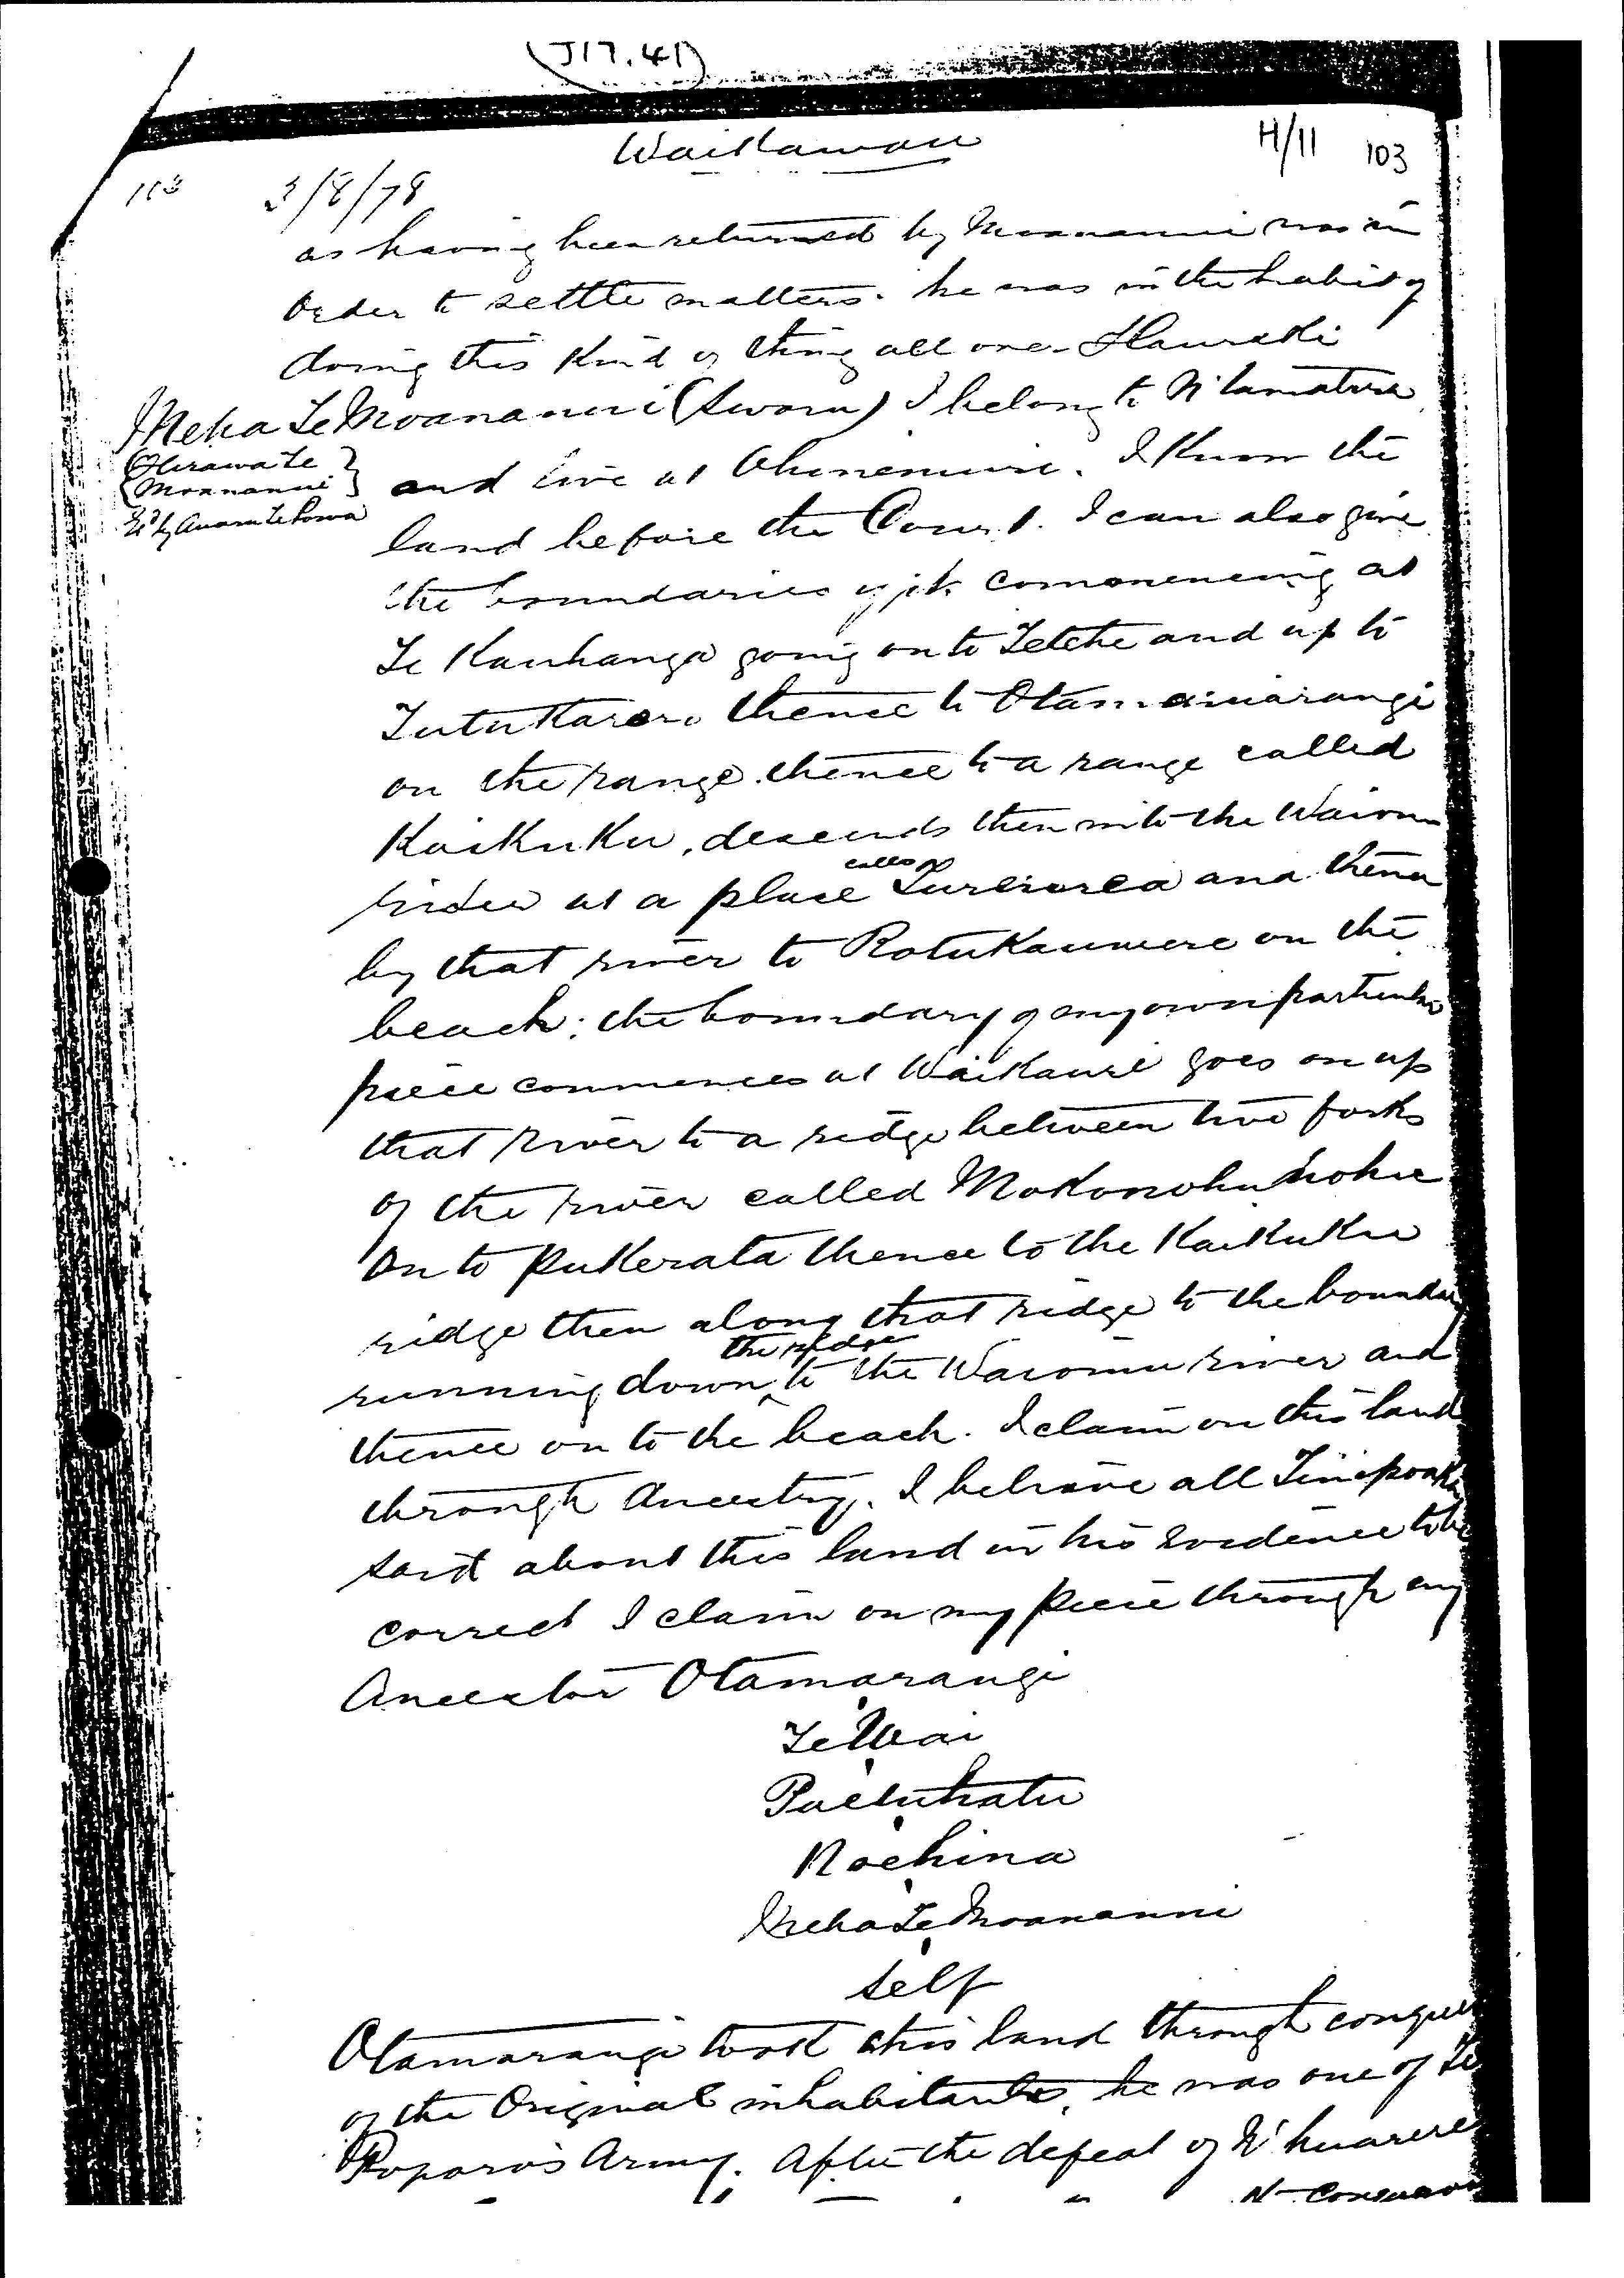 (J17.41)
Waikawau
H/11 103
103 3/8/78
as having been returned by Moananui was in
order to settle matters. he was in the habit of
doing this kind of thing all over Hauraki
Meha Te Moananui (Sworn) I belong to N'tamatera
Te
Moananui
and live at Ohinemuri. I know the
land before the Court. I can also give
the boundaries of it. commencing at
Te Kauhanga going on to Tetehe and up to
Tutukaroro thence to Otamawarangi
on the range. thence to a range called
Kaikuku, descends then into the Waiomu
river at a place called and thence
by that river to Rotukauwere on the
beach; the boundary of my own particular
piece commences at Waikauri goes on up
that river to a ridge between two forks
of the river called Mokonohunohu
on to Pukerata thence to the Kaikuku
ridge then along that ridge to the boundary
running down the ridge to the Waiomu river and
thence on to the beach. I claim on this land
through Ancestry. I believe all
said about this land in his evidence to be
correct I claim on my piece through my
Ancestor Otamarangi
Te Wai
Paeuhatu
Roehina
Meha Te Moananui
Self
Otamarangi took this land through
of the Original inhabitants, he was one of Te
Roporo's Army. After the defeat of N'huarere